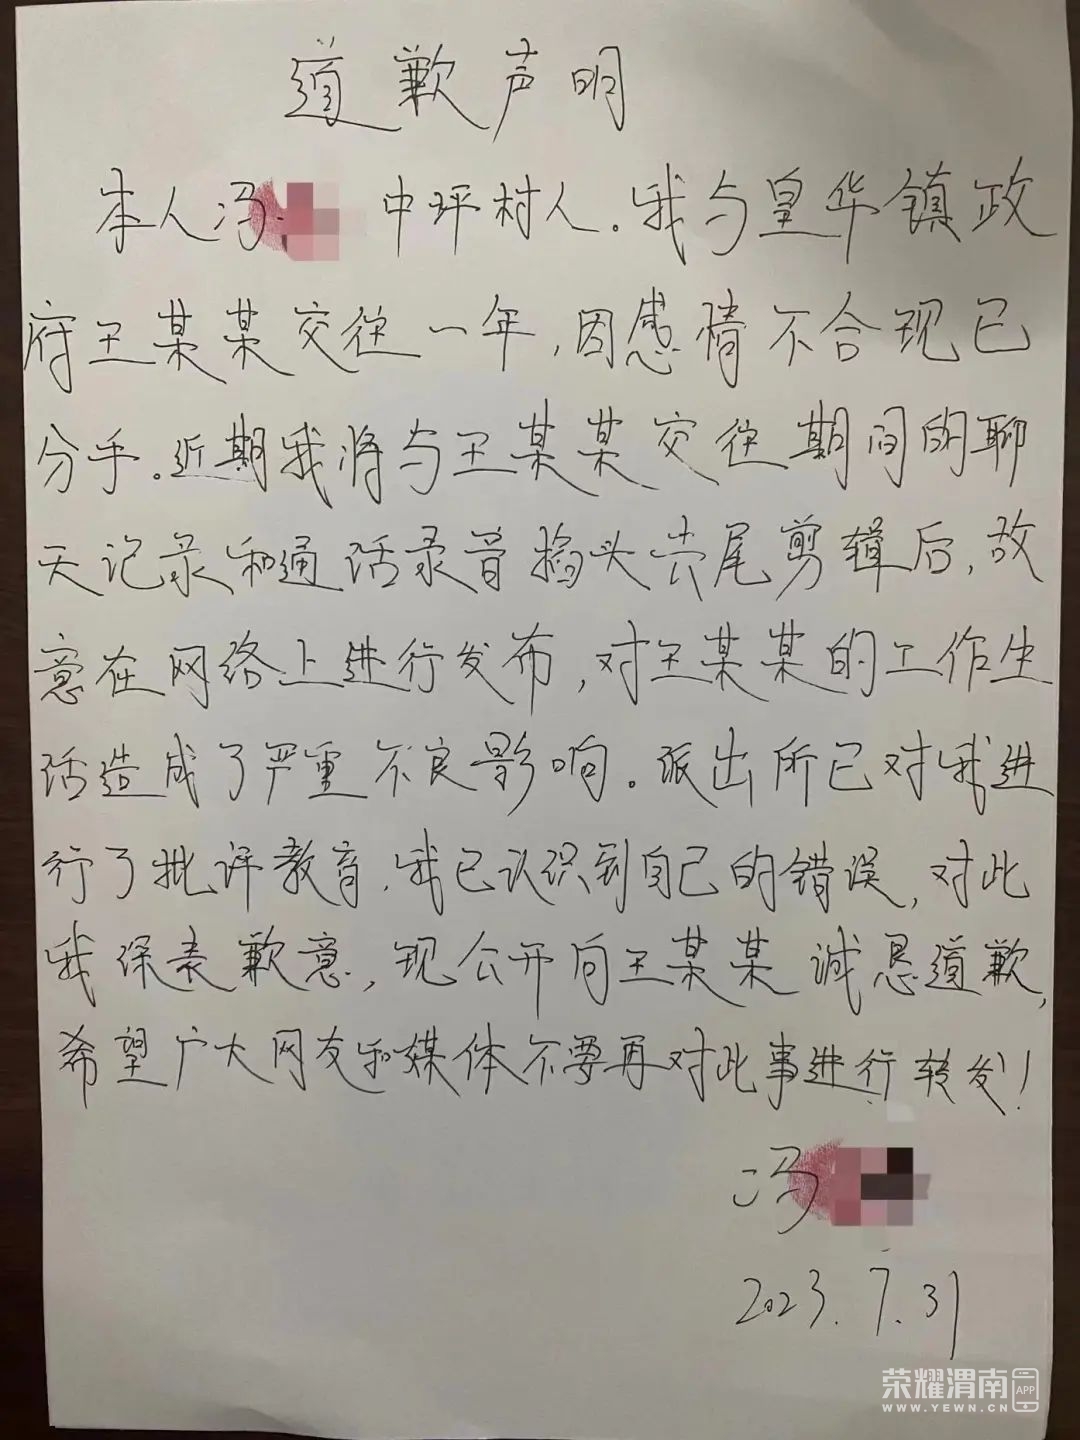 道歉声明
本人冯 中坪村人.我与皇华镇政
府王某某交往一年,因感情不合现已
分手.近期我将与王某某交往期间的聊
天记录和通话录音掐头去尾剪辑后,故
意在网络上进行发布,对王某某的工作生
活造成了严重不良影响.派出所已对我进
行了批评教育.我已认识到自己的错误,对此
我深表歉意,现公开向王某某诚恳道歉,
希望广大网友和媒体不要再对此事进行转发!
冯
2023.7.31
荣耀渭南 APP
WWW.YEWN.CN